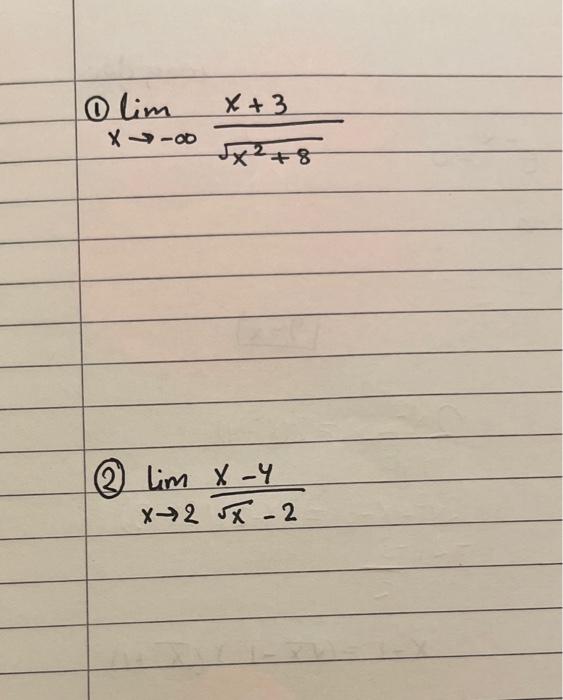 ① lim x + 3
x → -∞ √x² + 8
② Lim x - 4
x → 2 √x - 2